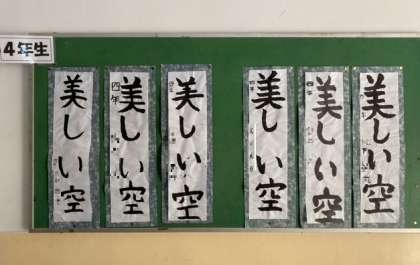 4年生
美しい空
美しい空
四年
美しい空
美しい空
美しい空
美しい空